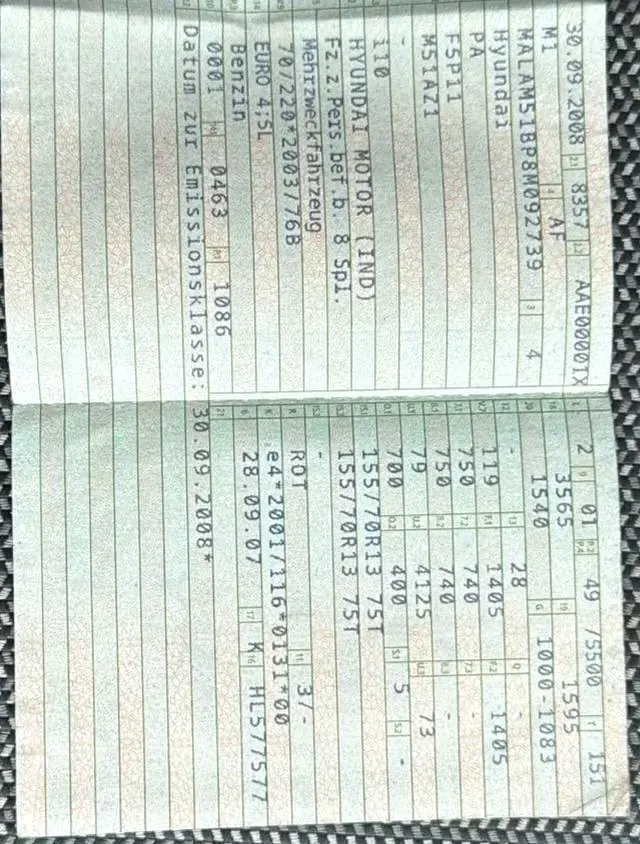 30.09.2008 8357 AAE00001X
M1 AF
MALAM51BP8M092739 4
Hyundai
PA
F5P11
M51AZ1
-
i10
HYUNDAI MOTOR (IND)
Fz.z.Pers.bef.b. 8 Spl.
Mehrzweckfahrzeug
70/220*2003/76B
EURO 4;5L
Benzin
0001 0463 1086
Datum zur Emissionsklasse: 30.09.2008*
2 01 49 /5500 151
3565 1595
1540 1000-1083
- 28 -
119 1405 1405
750 740 -
750 740 -
79 4125 73
700 400 5 -
155/70R13 75T
155/70R13 75T
-
ROT 3/-
e4*2001/116*0131*00
28.09.07 K HL577577